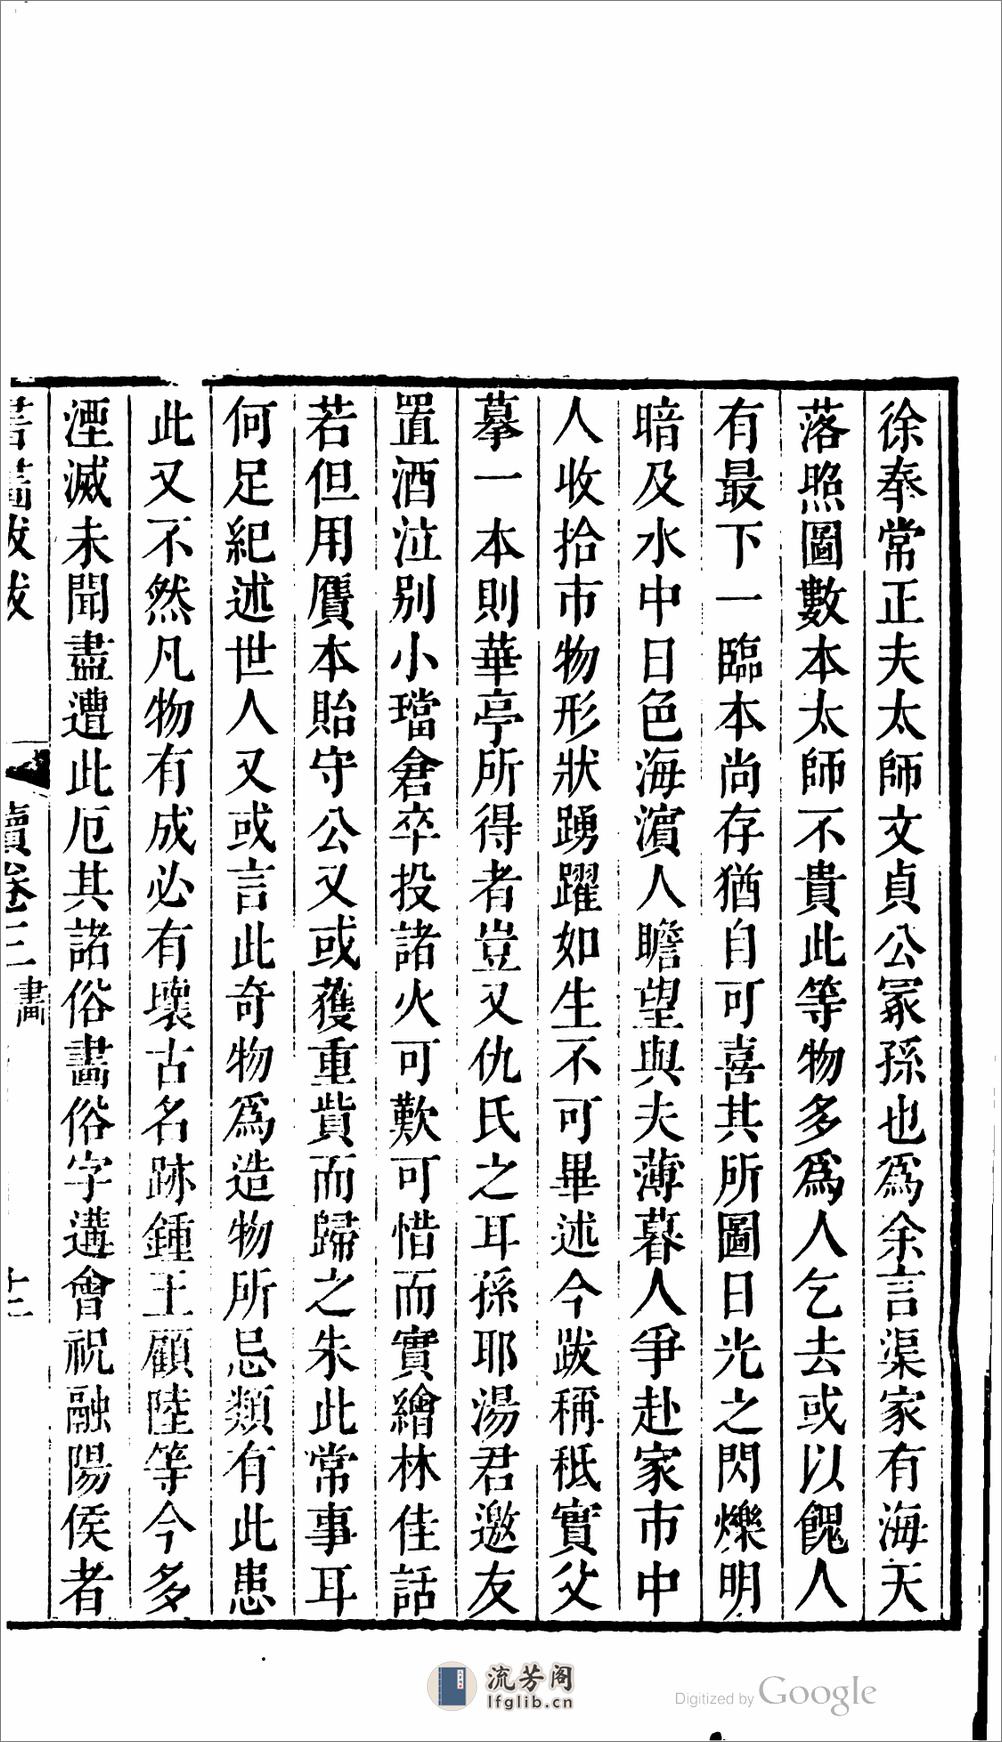 徐奉常正夫太師文貞公冢孫也爲余言渠家有海天
落照圖數本太師不貴此等物多爲人乞去或以餽人
有最下一臨本尚存猶自可喜其所圖日光之閃爍明
暗及水中日色海濵人瞻望與夫薄暮人爭赴家市中
人收拾市物形狀踴躍如生不可畢述今跋稱秖實父
摹一本則華亭所得者豈又仇氏之耳孫耶湯君邀友
置酒泣别小璫倉卒投諸火可歎可惜而實繪林佳話
若但用贋本貽守公又或獲重貲而歸之朱此常事耳
何足紀述世人又或言此奇物爲造物所忌類有此患
此又不然凡物有成必有壞古名跡鍾王顧陸等今多
湮滅未聞盡遭此厄其諸俗畫俗字遘會祝融陽侯者
書畫跋跋 續卷三 畫 十二
流芳阁
lfglib.cn
Digitized by Google